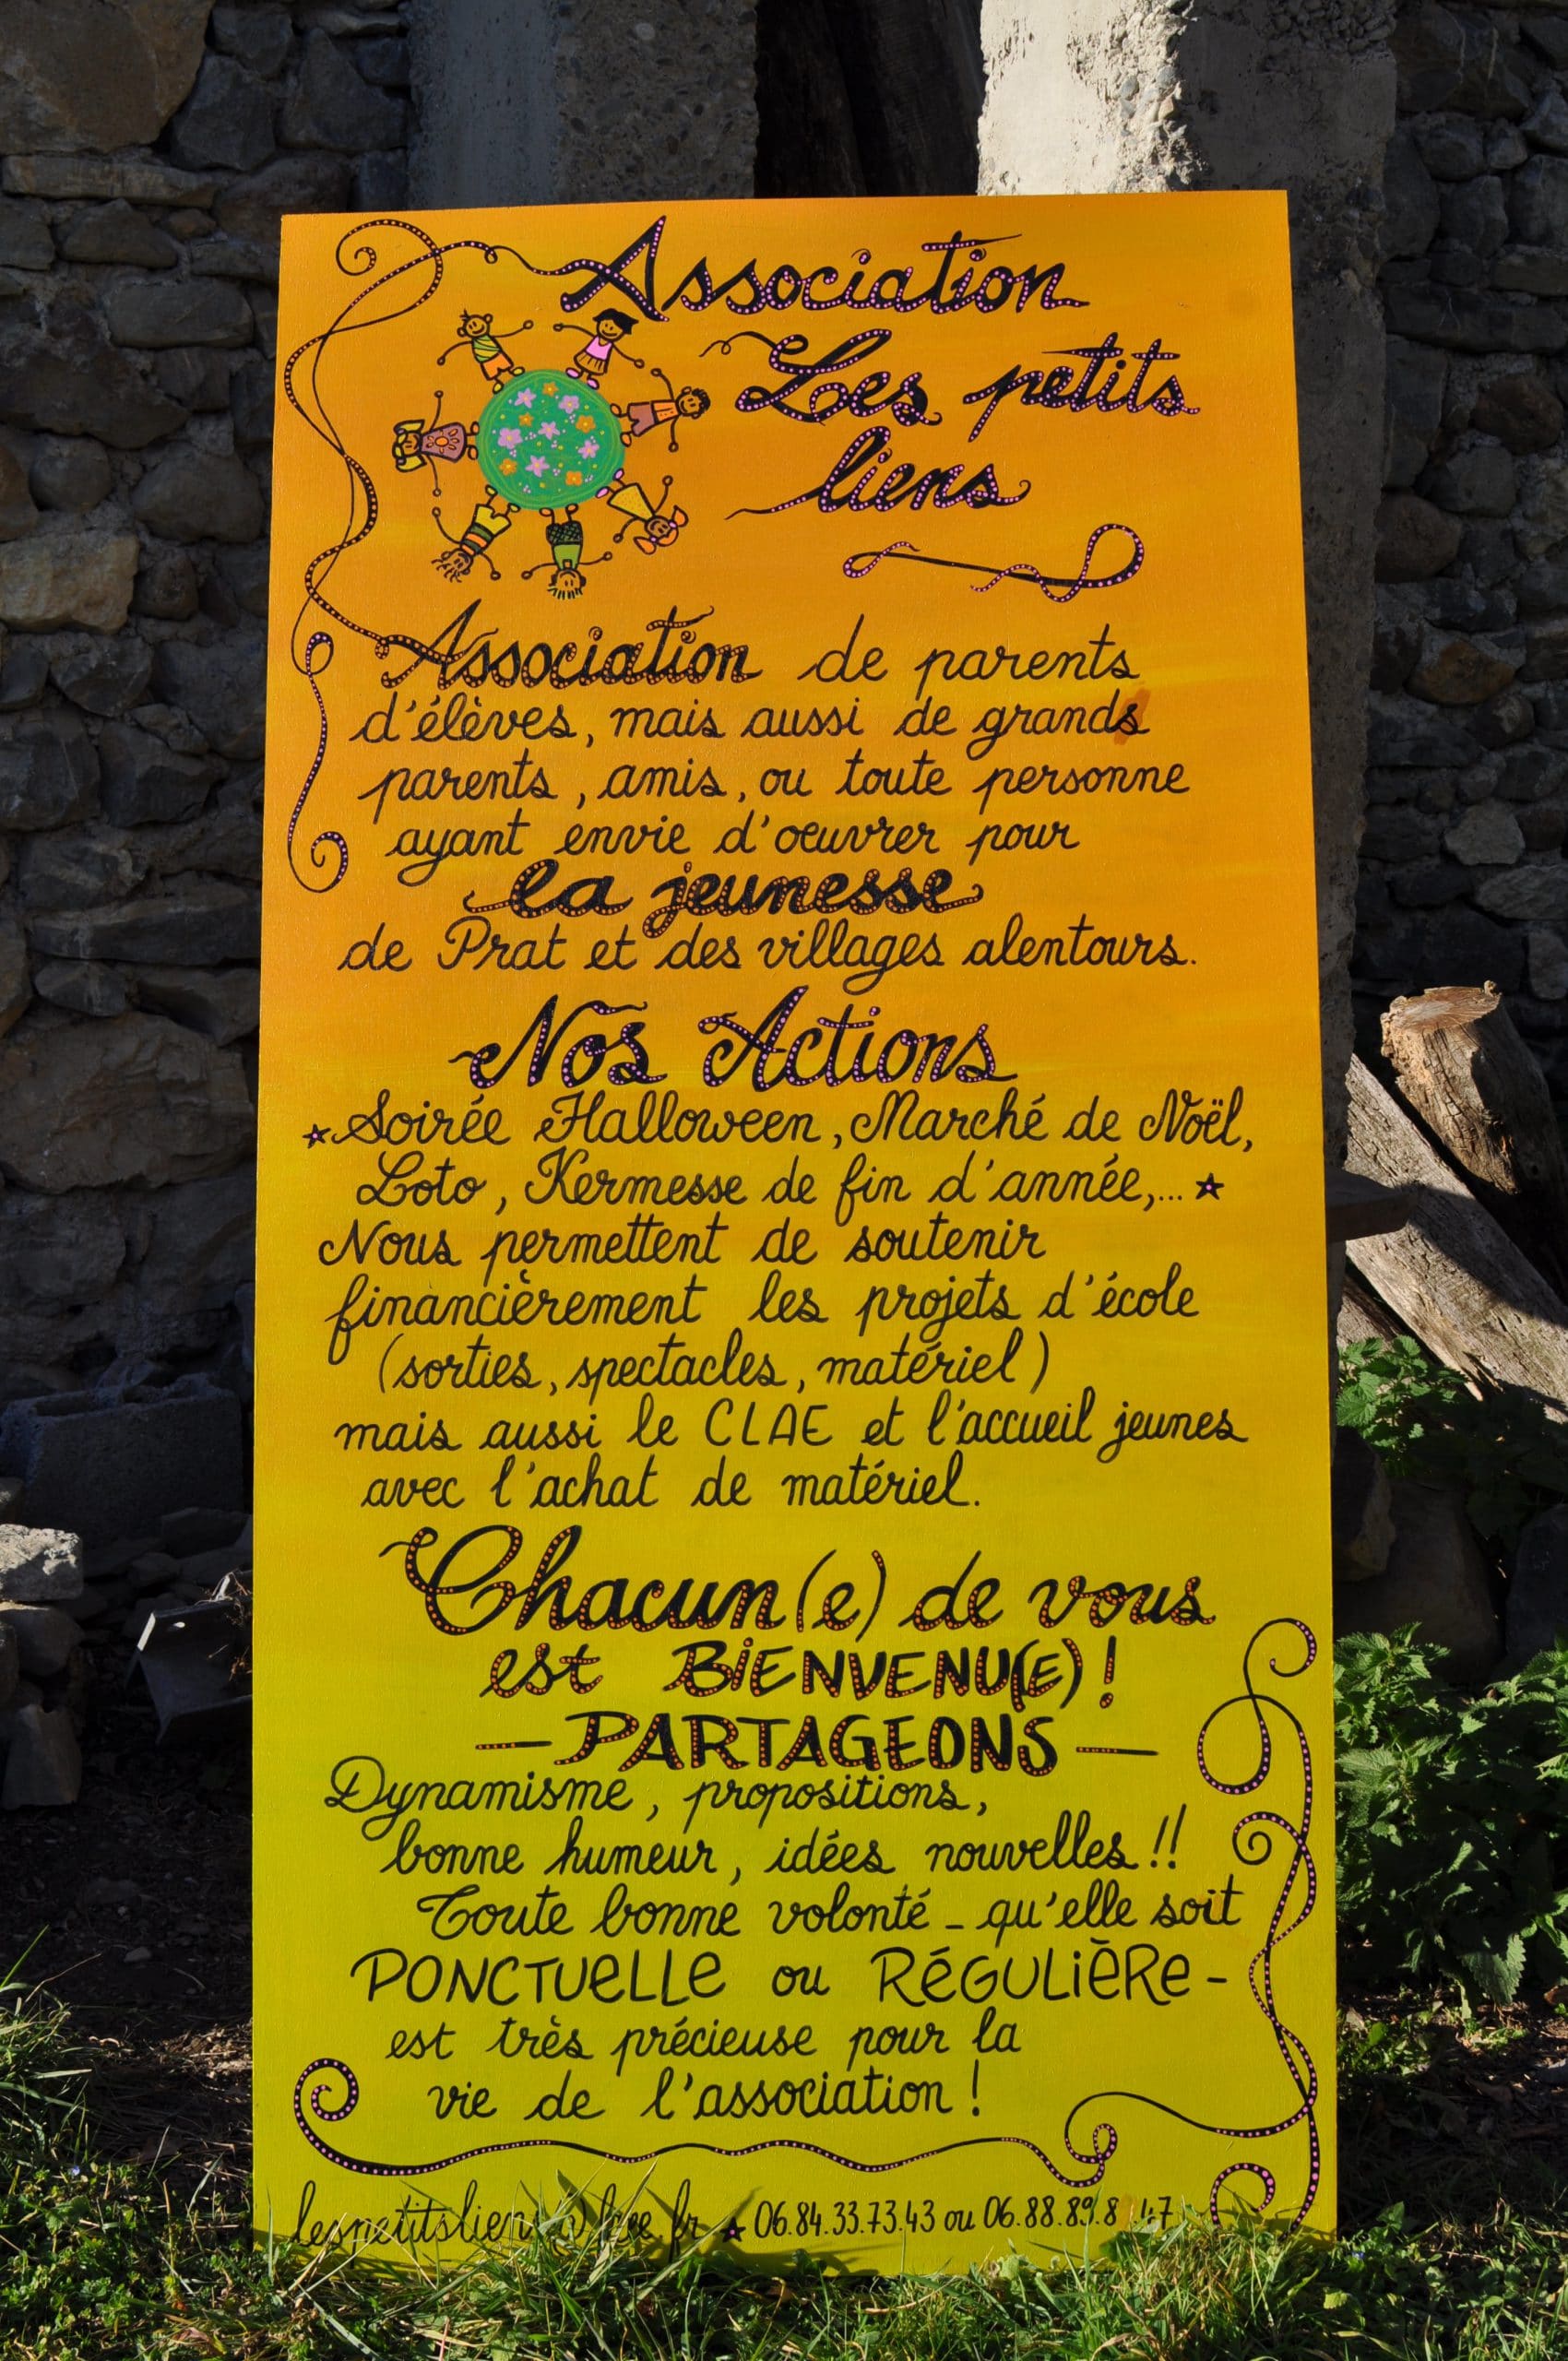 Association
Les petits
liens
Association de parents
d'élèves, mais aussi de grands
parents, amis, ou toute personne
ayant envie d'oeuvrer pour
la jeunesse
de Prat et des villages alentours.
Nos Actions
Soirée Halloween, Marché de Noël,
Loto, Kermesse de fin d'année,...
Nous permettent de soutenir
financièrement les projets d'école
(sorties, spectacles, matériel)
mais aussi le CLAE et l'accueil jeunes
avec l'achat de matériel.
Chacun(e) de vous
est BIENVENU(E) !
— PARTAGEONS —
Dynamisme, propositions,
bonne humeur, idées nouvelles !!
Toute bonne volonté - qu'elle soit
PONCTUELLE ou RÉGULIÈRE -
est très précieuse pour la
vie de l'association !
06.84.33.73.43 ou